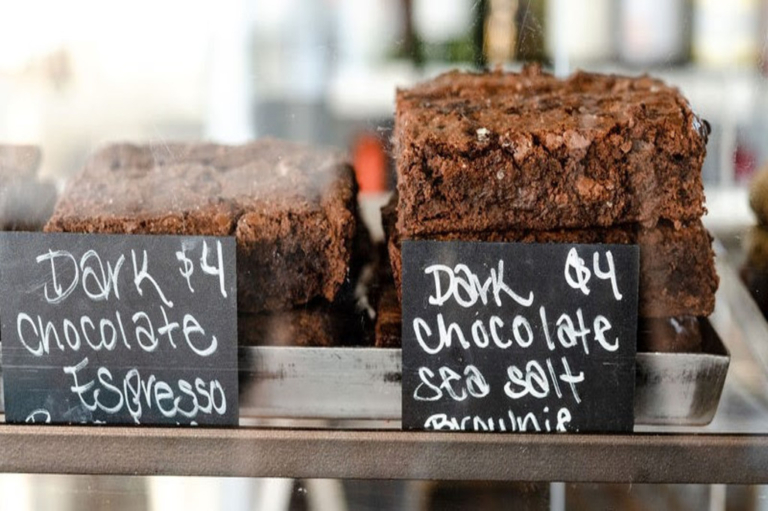 Dark $4
chocolate
Espresso
Dark $4
chocolate
sea salt
Brownie